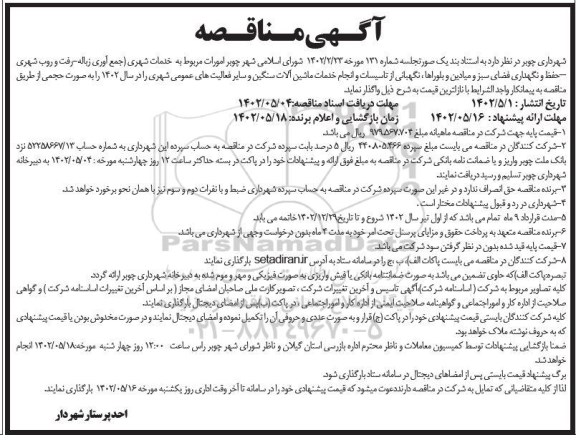 آگهی مناقصه
شهرداری چوبر در نظر دارد به استناد بند یک صورتجلسه شماره ۱۳۱ مورخه ۱۴۰۲/۲/۲۳ شورای اسلامی شهر چوبر امورات مربوط به خدمات شهری (جمع آوری زباله-رفت و روب شهری
-حفظ و نگهداری فضای سبز و میادین و بلوارها، نگهبانی از تاسیسات و انجام خدمات ماشین آلات سنگین و سایر فعالیت های عمومی شهری را در سال ۱۴۰۲ را به صورت حجمی از طریق
مناقصه به پیمانکار واجد الشرایط با نازلترین قیمت به شرح ذیل واگذار نماید.
تاریخ انتشار : ۱۴۰۲/۵/۱ مهلت دریافت اسناد مناقصه:۱۴۰۲/۰۵/۰۴
مهلت ارائه پیشنهاد : ۱۴۰۲/۰۵/۱۶ زمان بازگشایی و اعلام برنده:۱۴۰۲/۰۵/۱۸
۱-قیمت پایه جهت شرکت در مناقصه ماهیانه مبلغ ریال می باشد.
۲-شرکت کنندگان در مناقصه می بایست مبلغ سپرده ریال ۵ درصد بابت سپرده شرکت در مناقصه به حساب سپرده این شهرداری به شماره حساب نزد
بانک ملت چوبر واریز و یا ضمانت نامه بانکی شرکت در مناقصه به مبلغ فوق ارائه و پیشنهادات خود را در پاکت در بسته حداکثر ساعت ۱۲ روز چهارشنبه مورخه : ۱۴۰۲/۰۵/۰۴ به دبیرخانه
شهرداری چوبر تسلیم و رسید دریافت نمایند.
۳-برنده مناقصه حق انصراف ندارد و در غیر این صورت سپرده شرکت در مناقصه به حساب سپرده شهرداری ضبط و با نفرات دوم و سوم نیز با همان نحو برخورد خواهد شد.
۴-شهرداری در رد و قبول پیشنهادات مختار است .
۵-مدت قرارداد ۹ ماه تمام می باشد که از اول تیر سال ۱۴۰۲ شروع و تا تاریخ ۱۴۰۲/۱۲/۲۹ خاتمه می یابد.
۶-برنده مناقصه متعهد به پرداخت حقوق و مزایای پرسنل تحت امر خود به مدت ۲ ماه بدون درخواست وجهی از شهرداری می باشد.
۷-قیمت پایه قید شده بدون در نظر گرفتن سود شرکت می باشد.
۸-شرکت کنندگان در مناقصه می بایست پاکات الف) ب )ج را در سامانه ستاد به آدرس setadiran.ir بارگذاری نمایند
تبصره:پاکت الف)که حاوی تضمین می باشد به صورت ضمانتنامه بانکی یا فیش واریزی به صورت فیزیکی و مهر و موم شده به دبیرخانه شهرداری چوبر ارائه گردد.
کلیه تصاویر مربوط به شرکت ( اساسنامه شرکت)آگهی تاسیس و آخرین تغییرات شرکت ، تصویر کارت ملی صاحبان امضای مجاز ( بر اساس آخرین تغییرات اساسنامه شرکت ) و گواهی
صلاحیت از اداره کار و امور اجتماعی و گواهینامه صلاحیت ایمنی از اداره کار و امور اجتماعی در پاکت(ب) پس از امضای دیجیتال بارگذاری نمایند.
کلیه شرکت کنندگان بایستی قیمت پیشنهادی خود را در پاکت (ج)قرار و به صورت عددی و حروفی آن را تکمیل نموده و امضای دیجیتال نمایند و در صورت مخدوش بودن یا قیمت پیشنهادی
که به حروف نوشته ملاک خواهد بود.
ضمنا بازگشایی پیشنهادات توسط کمیسیون معاملات و ناظر محترم اداره بازرسی استان گیلان و ناظر شورای شهر چوبر راس ساعت ۱۲:۰۰ روز چهار شنبه مورخه:۱۴۰۲/۰۵/۱۸ انجام
خواهد شد.
برگ پیشنهاد قیمت بایستی پس از امضاهای دیجتال در سامانه ستاد بارگذاری شود.
لذا از کلیه متقاضیانی که تمایل به شرکت در مناقصه دارند دعوت میشود که قیمت پیشنهادی خود را در سامانه تا آخر وقت اداری روز یکشنبه مورخه ۱۴۰۲/۰۵/۱۶ بارگذاری نمایند.
احد پرستار شهردار